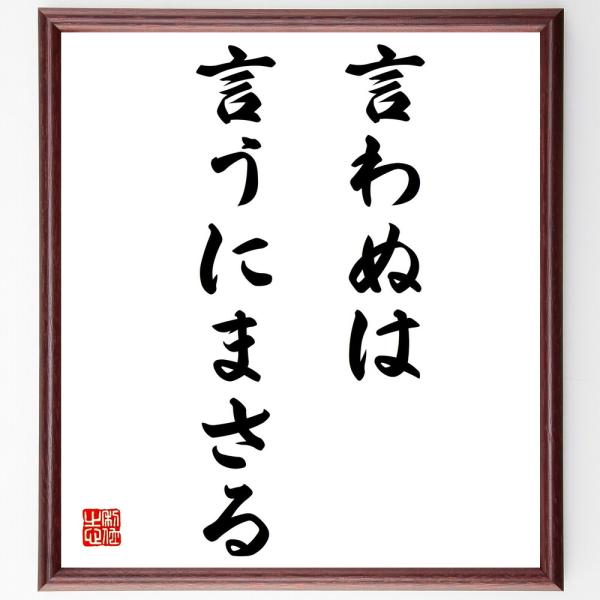 言わぬは
言うにまさる